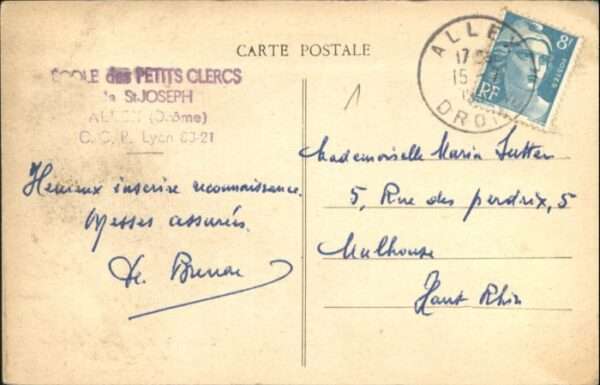 CARTE POSTALE
ÉCOLE des PETITS CLERCS
de St JOSEPH
ALLEX (Drôme)
C. C. P. Lyon 83-21
inscrire reconnaissance.
Messes assurées.
ALLEX
17
15
DROME
8F
POSTES
RF
1
Mademoiselle Maria Sutter
5, Rue des perdrix, 5
Mulhouse
Haut Rhin